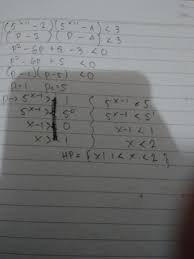 (5ˣ⁻¹ - 2)(5ˣ⁻¹ - 4) < 3
(P - 2)(P - 4) < 3
P² - 6P + 5 - 3 < 0
P² - 6P + 5 < 0
(P - 1)(P - 5) < 0
P = 1 P₂ = 5
5ˣ⁻¹ > 1 5ˣ⁻¹ < 5
5ˣ⁻¹ > 5⁰ 5ˣ⁻¹ < 5¹
x-1 > 0 x-1 < 1
x > 1 x < 2
HP = {x | 1 < x < 2}